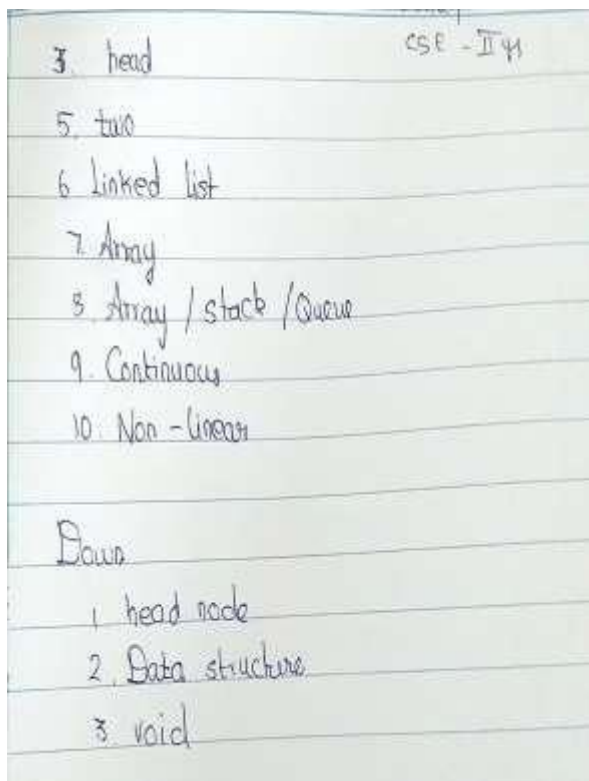 CSE - II yr
3. head
5. two
6 Linked list
7. Array
8. Array / stack / Queue
9. Continuous
10. Non - linear
Down
1 head node
2. Data structure
3. void